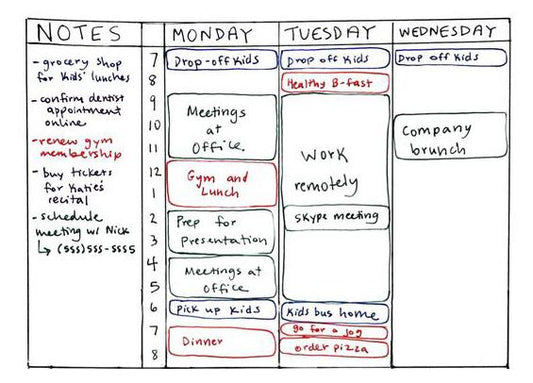 NOTES
- grocery shop
for kids' lunches
- confirm dentist
appointment
online
- renew gym
membership
- buy tickets
for Katie's
recital
- schedule
meeting w/ Nick
↳ (555)555-5555
7
8
9
10
11
12
1
2
3
4
5
6
7
8
MONDAY
Drop-off Kids
Meetings
at
Office
Gym and
Lunch
Prep for
Presentation
Meetings at
Office
Pick up Kids
Dinner
TUESDAY
Drop off Kids
Healthy B-fast
Work
remotely
Skype meeting
Kids bus home
go for a jog
order pizza
WEDNESDAY
Drop off Kids
Company
brunch